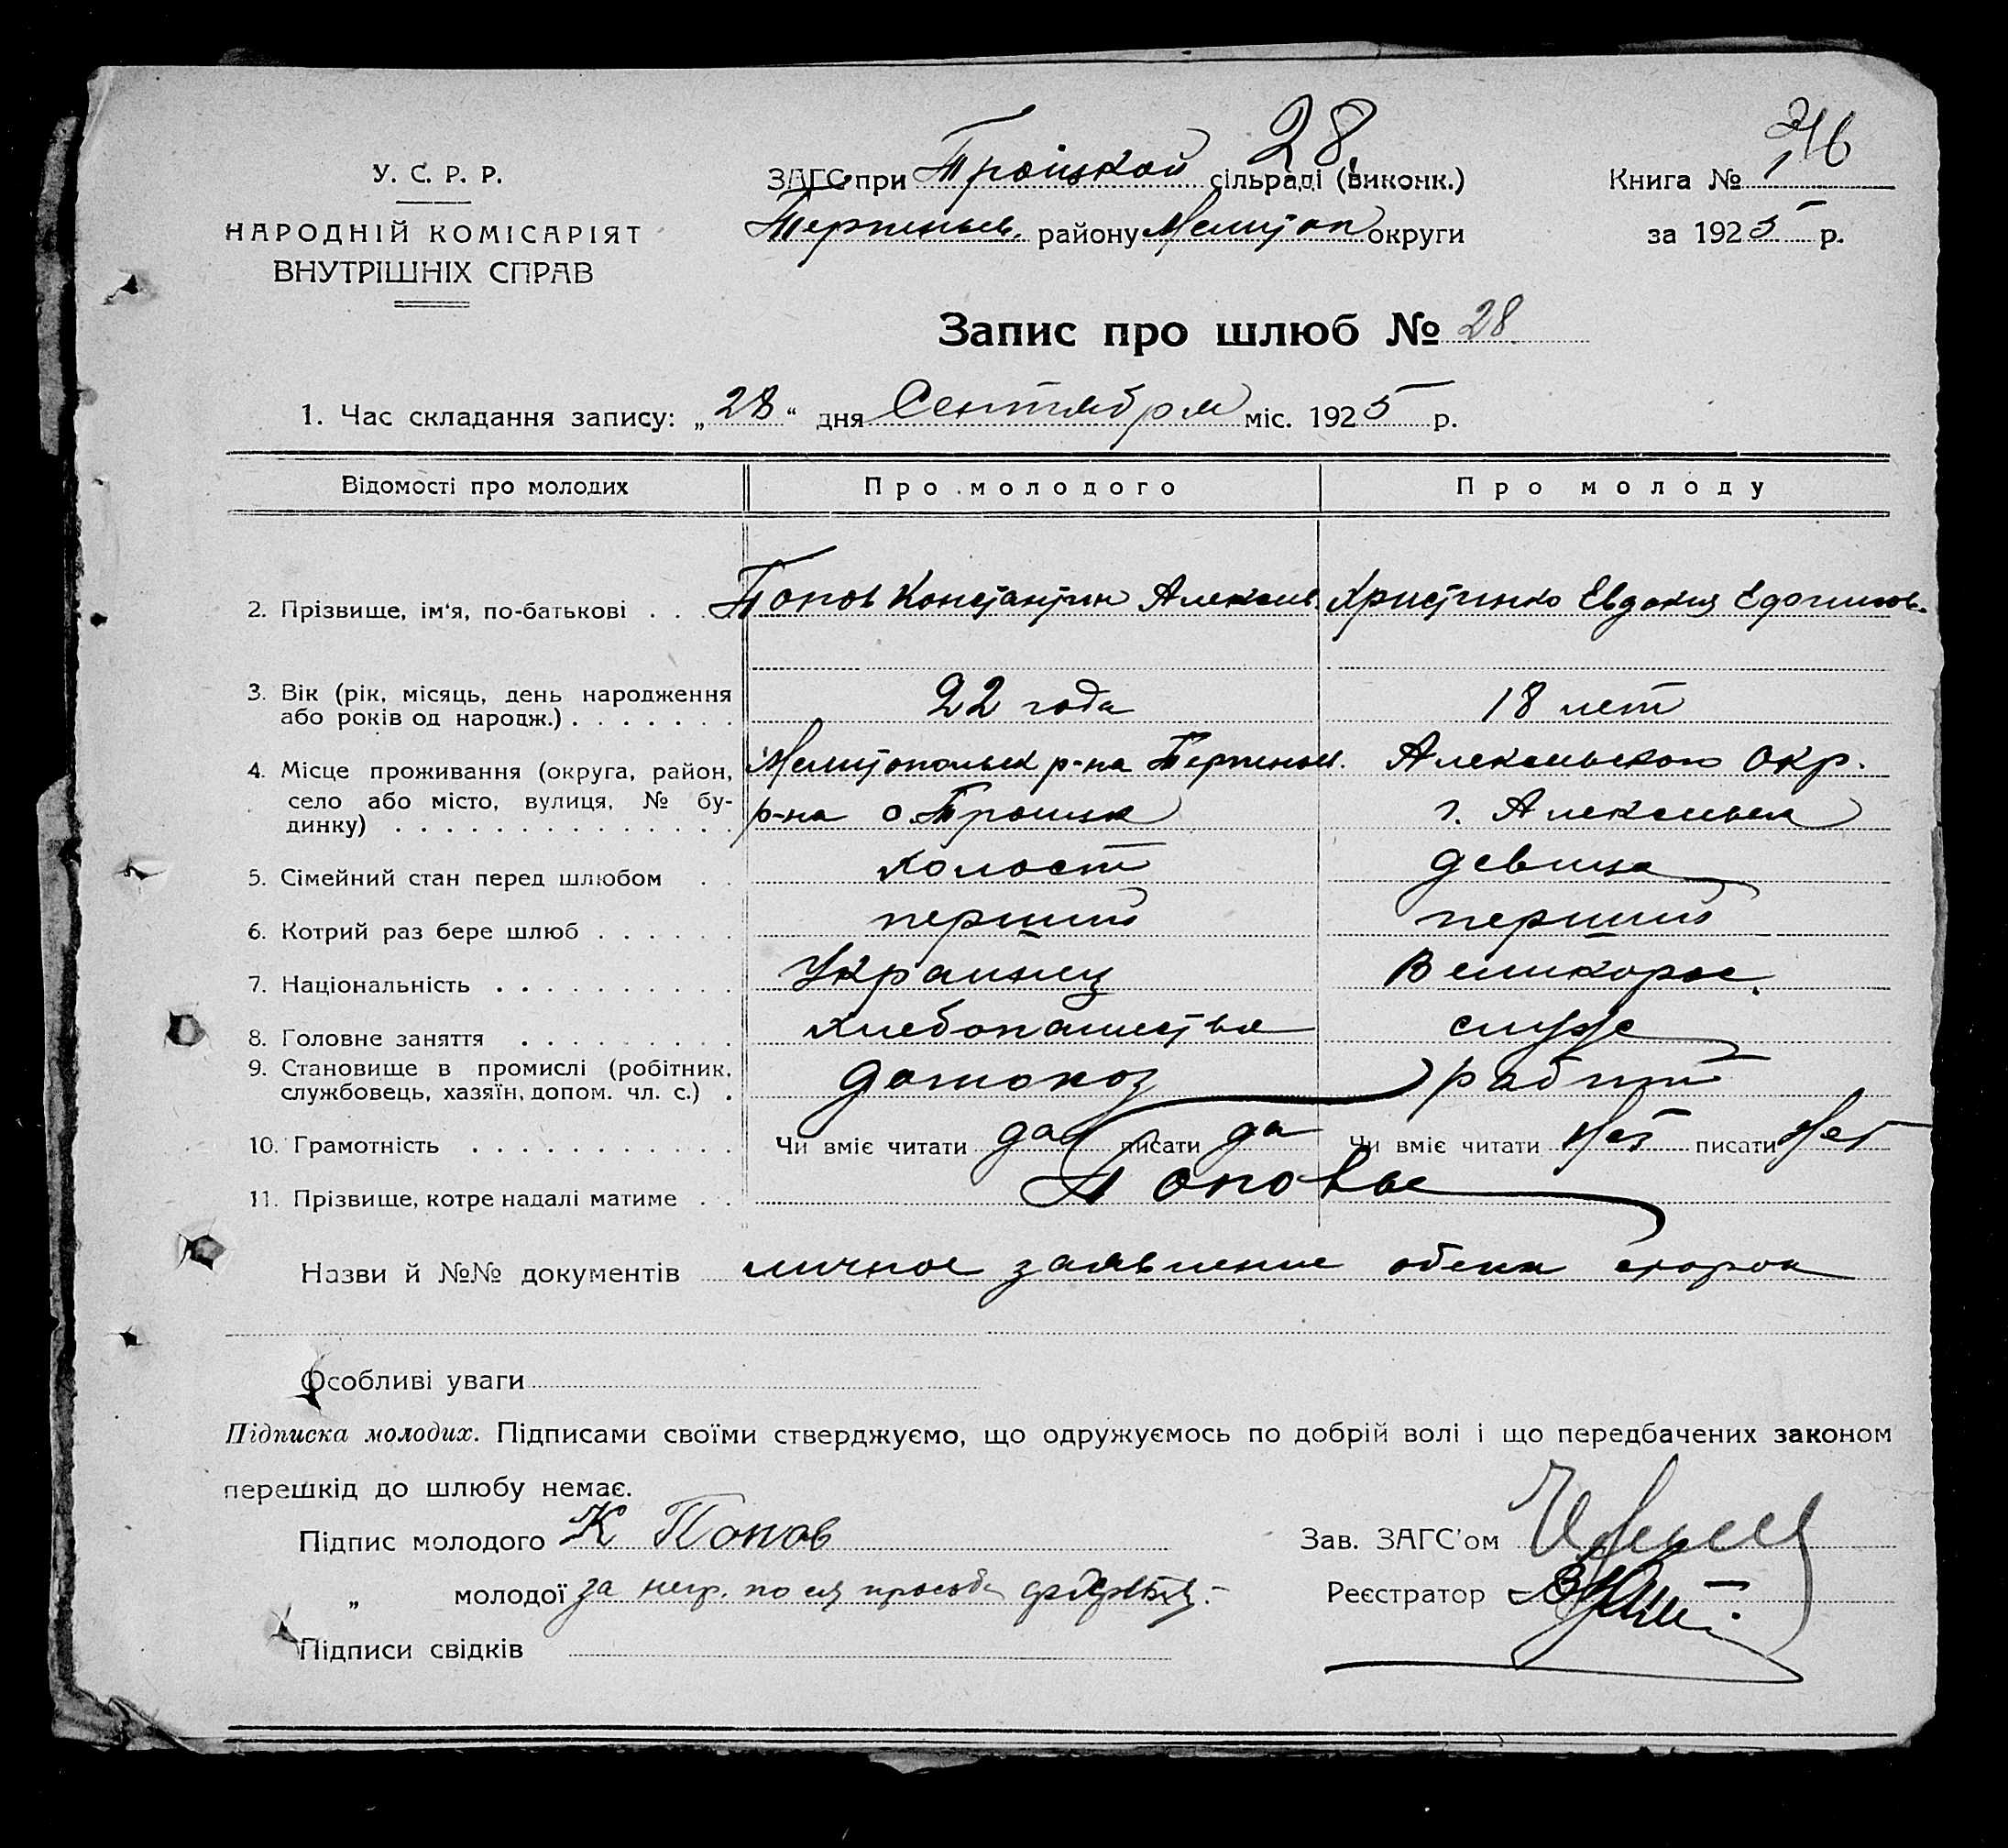 28
216
У. С. Р. Р.
ЗАГС при Троіцкой сільраді (виконк.)
Книга № 1
НАРОДНІЙ КОМІСАРІЯТ
Терпеньев. району Мелитоп округи
за 1925 р.
ВНУТРІШНІХ СПРАВ
Запис про шлюб № 28.
1. Час складання запису: „28“ дня Сентября міс. 1925 р.
Відомості про молодих Про молодого Про молоду
2. Прізвище, ім'я, по-батькові . . . Попов Константин Алексеев. Христинко Евдокия
3. Вік (рік, місяць, день народження
або років од народж.) . . . . . . . 22 года 18 лет
4. Місце проживання (округа, район, Мелитопольск р-на Терпеньев. Алексеевского Окр.
село або місто, вулиця, № бу-
динку) . . . . . . . . . . . . . . р-на с. Троицк г. Алексеевка
5. Сімейний стан перед шлюбом . . холост девица
6. Котрий раз бере шлюб . . . . . . первый первый
7. Національність . . . . . . . . . . Украинец Великорос.
8. Головне заняття . . . . . . . . . хлебопашество служ
9. Становище в промислі (робітник,
службовець, хазяїн, допом. чл. с.) . домохоз работ
10. Грамотність . . . . . . . . . . . Чи вміє читати да писати да Чи вміє читати Нет писати Нет
11. Прізвище, котре надалі матиме . . Поповы
Назви й №№ документів личное заявление обеих сторон
Особливі уваги
Підписка молодих. Підписами своїми стверджуємо, що одружуємось по добрій волі і що передбачених законом
перешкід до шлюбу немає.
Підпис молодого К Попов
Зав. ЗАГС'ом
„ молодої за негр. по ея просьбе
Реєстратор
Підписи свідків